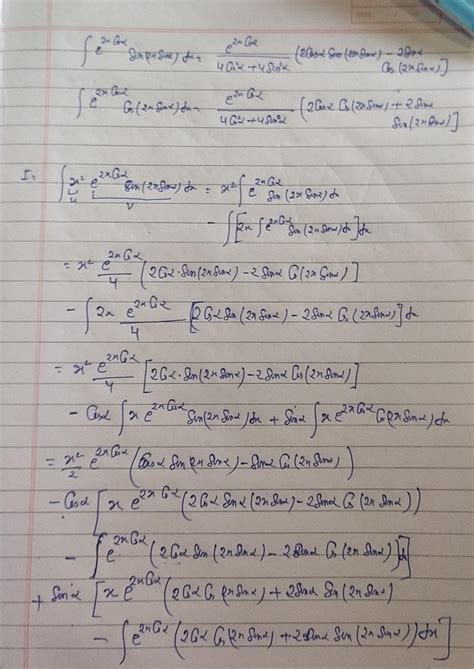 ∫ e^{2x Cosα} Sin(2x Sinα) dx = e^{2x Cosα} / (4Cos²α + 4Sin²α) (2Cosα Sin(2x Sinα) − 2Sinα
Cos(2x Sinα)]
∫ e^{2x Cosα} Cos(2x Sinα) dx = e^{2x Cosα} / (4Cos²α + 4Sin²α) (2Cosα Cos(2x Sinα) + 2Sinα
Sin(2x Sinα)]
I = ∫ x² e^{2x Cosα} Sin(2x Sinα) dx = x² ∫ e^{2x Cosα} Sin(2x Sinα) dx
u v
− ∫ [2x ∫ e^{2x Cosα} Sin(2x Sinα) dx] dx
= x² e^{2x Cosα} / 4 (2Cosα · Sin(2x Sinα) − 2Sinα Cos(2x Sinα)]
− ∫ 2x e^{2x Cosα} / 4 [2Cosα Sin(2x Sinα) − 2Sinα Cos(2x Sinα)] dx
= x² e^{2x Cosα} / 4 [2Cosα · Sin(2x Sinα) − 2Sinα Cos(2x Sinα)]
− Cosα ∫ x e^{2x Cosα} Sin(2x Sinα) dx + Sinα ∫ x e^{2x Cosα} Cos(2x Sinα) dx
= x²/2 e^{2x Cosα} (Cosα Sin(2x Sinα) − Sinα Cos(2x Sinα))
− Cosα [x e^{2x Cosα} (2Cosα Sin(2x Sinα) − 2Sinα Cos(2x Sinα))
− ∫ e^{2x Cosα} (2Cosα Sin(2x Sinα) − 2Sinα Cos(2x Sinα)) dx]
+ Sinα [x e^{2x Cosα} (2Cosα Cos(2x Sinα) + 2Sinα Sin(2x Sinα)
− ∫ e^{2x Cosα} (2Cosα Cos(2x Sinα) + 2Sinα Sin(2x Sinα)) dx]